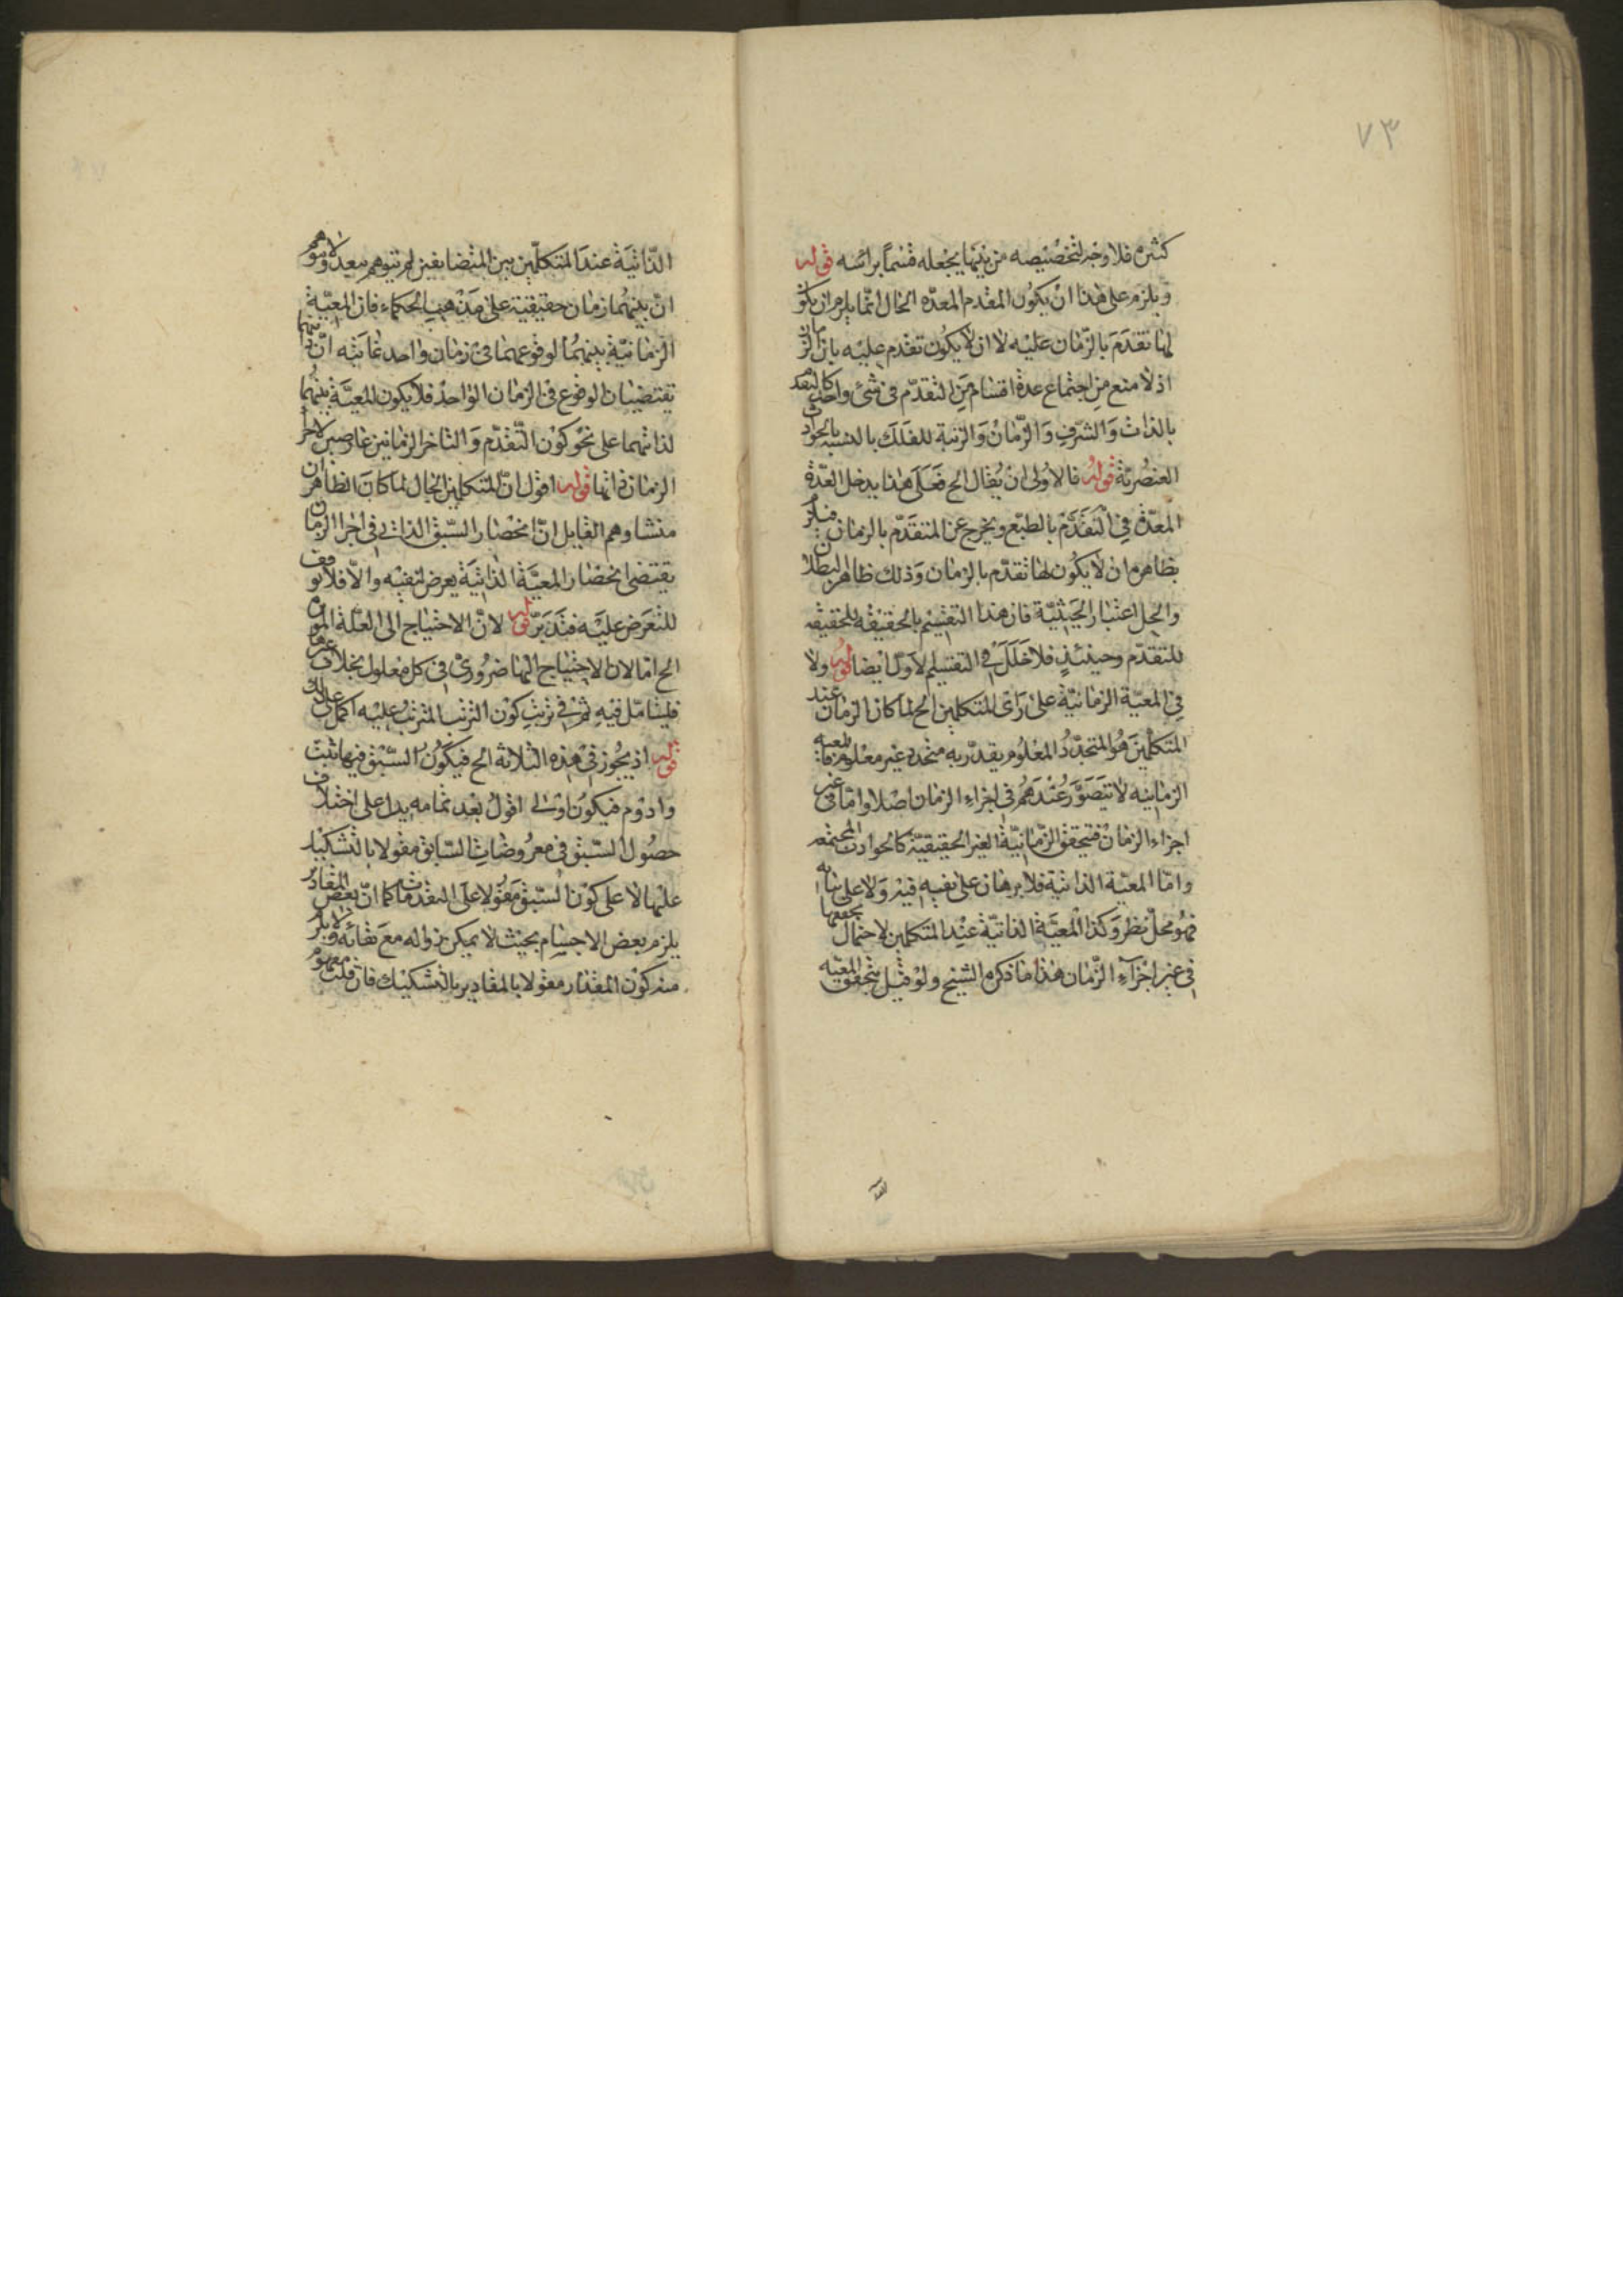 ٧٣
كثيرة فلا وجه لتخصيصه من بينها يجعله قسما براسه قوله
ويلزم على هذا ان يكون المقدم المعده الخال انما يلزم ان يكون
لها تقدم بالزمان عليه لا ان لا يكون تقدم عليه بالزمان
اذ لا منع من اجتماع عدة اقسام من التقدم فى شئ واحد كالتقدم
بالذات والشرف والزمان والرتبة للفلك بالنسبة بالحوادث
العنصرية قوله فالاولى ان يقال الح فعلى هذا يدخل العدة
المعدة فى التقدم بالطبع ويخرج عن المتقدم بالزمان فيلزم
بظاهره ان لا يكون لها تقدم بالزمان وذلك ظاهر البطلان
والحل اعتبار الحيثية فان هذا التقسيم بالحقيقة للحقيقة
للتقدم وحينئذ فلا خلل فى التقسيم الاول ايضا قوله ولا
فى المعية الزمانية على راى المتكلمين الح لما كان الزمان عند
المتكلمين هو المتجدد المعلوم يقدر به متجدد غير معلوم فالمعية
الزمانيه لا تتصور عندهم فى اجزاء الزمان اصلا واما فى غير
اجزاء الزمان فتحقق الزمانية الغير الحقيقية كالحوادث المجتمعه
واما المعية الذاتية فلا برهان على نفيه فيه ولا على اثباته
فهو محل نظر وكذا المعية الذاتية عند المتكلمين لاحتمال تحققها
فى غير اجزآء الزمان هذا ما ذكره الشيخ ولو قيل بتحقق المعيه
الذاتية عند المتكلمين بين المتضايفين لم يتوهم بعيد ولا يتوهم
ان بينهما زمان حقيقية على مذهب الحكماء فان المعية
الزمانية بينهما لوقوعهما فى زمان واحد غايته ان ذاتيهما
تقتضيان الوقوع فى الزمان الواحد فلا يكون المعية بينهما
لذاتهما على نحو كون التقدم والتاخر الزمانين عارضين لاجزاء
الزمان ذاتها قوله اقول ان المتكلمين الخال لما كان الظاهر ان
منشا وهم القايل ان انحصار السبق الذاتى فى اجزا الزمان
يقتضى انحصار المعية الذاتية يعرض لنفيه والا فلا توقف
للتعرض عليه فتدبر قوله لان الاحتياج الى العلة المؤثرة
الح اما لان الاحتياج اليها ضرورى فى كل معلول بخلاف غيرها
فليتامل فيه ثم فى ترتب كون الترتب المترتب عليه اكمل على ذلك
قوله اذ يجوز فى هذه الثلاثة الح فيكون السبق فيها ثبت
وادوم فيكون اولى اقول بعد تمامه يدل على اختلاف
حصول السبق فى معروضات السابق مقولا بالتشكيك
عليها لا على كون السبق مقولا على التقدمات كما ان بعض المقادير
يلزم بعض الاجسام بحيث لا يمكن زواله مع بقائه ولا يلزم
منه كون المقدار مقولا بالمقادير بالتشكيك فان قلت مفهوم